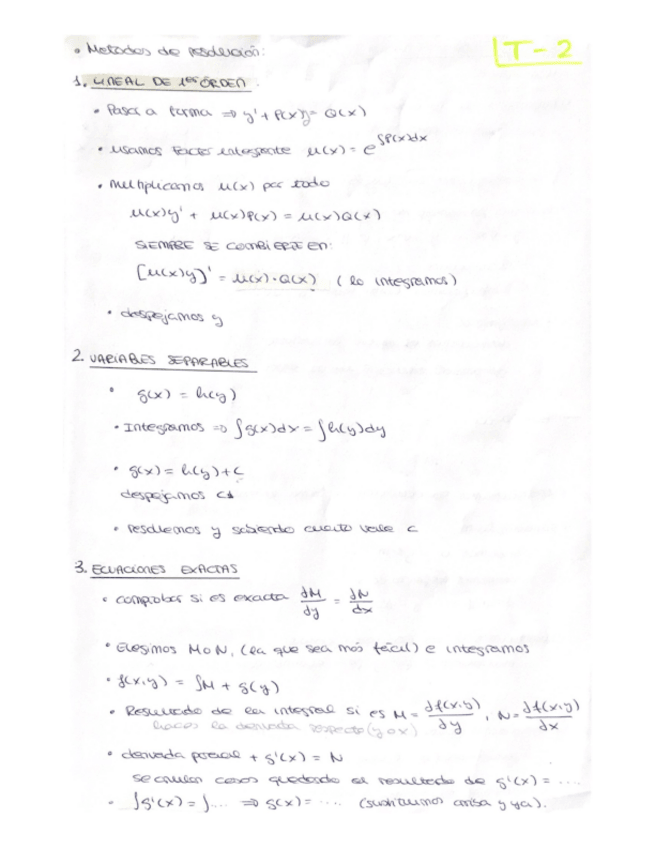 • Metodos de resolución:
T-2
1. LINEAL DE 1er ÓRDEN.
• Pasar a forma ⇒ y' + P(x)y = Q(x)
• usamos factor integrante u(x) = e^∫P(x)dx
• multiplicamos u(x) por todo
u(x)y' + u(x)P(x) = u(x)Q(x)
SIEMPRE SE CONVIERTE EN:
[u(x)y]' = u(x)·Q(x) (lo integramos)
• despejamos y
2. VARIABLES SEPARABLES
• g(x) = h(y)
• Integramos ⇒ ∫g(x)dx = ∫h(y)dy
• g(x) = h(y) + C
despejamos C
• resolvemos y sabiendo cuanto vale c
3. ECUACIONES EXACTAS
• comprobar si es exacta dM/dy = dN/dx
• Elegimos M o N, (la que sea más fácil) e integramos
• f(x,y) = ∫M + g(y)
• Resultado de la integral si es M = df(x,y)/dy, N = df(x,y)/dx
hacer la derivada respecto (y o x)
• derivada parcial + g'(x) = N
se anulan cosas quedando el resultado de g'(x) = ....
• ∫g'(x) = ∫.... ⇒ g(x) = .... (sustituimos arriba y ya).